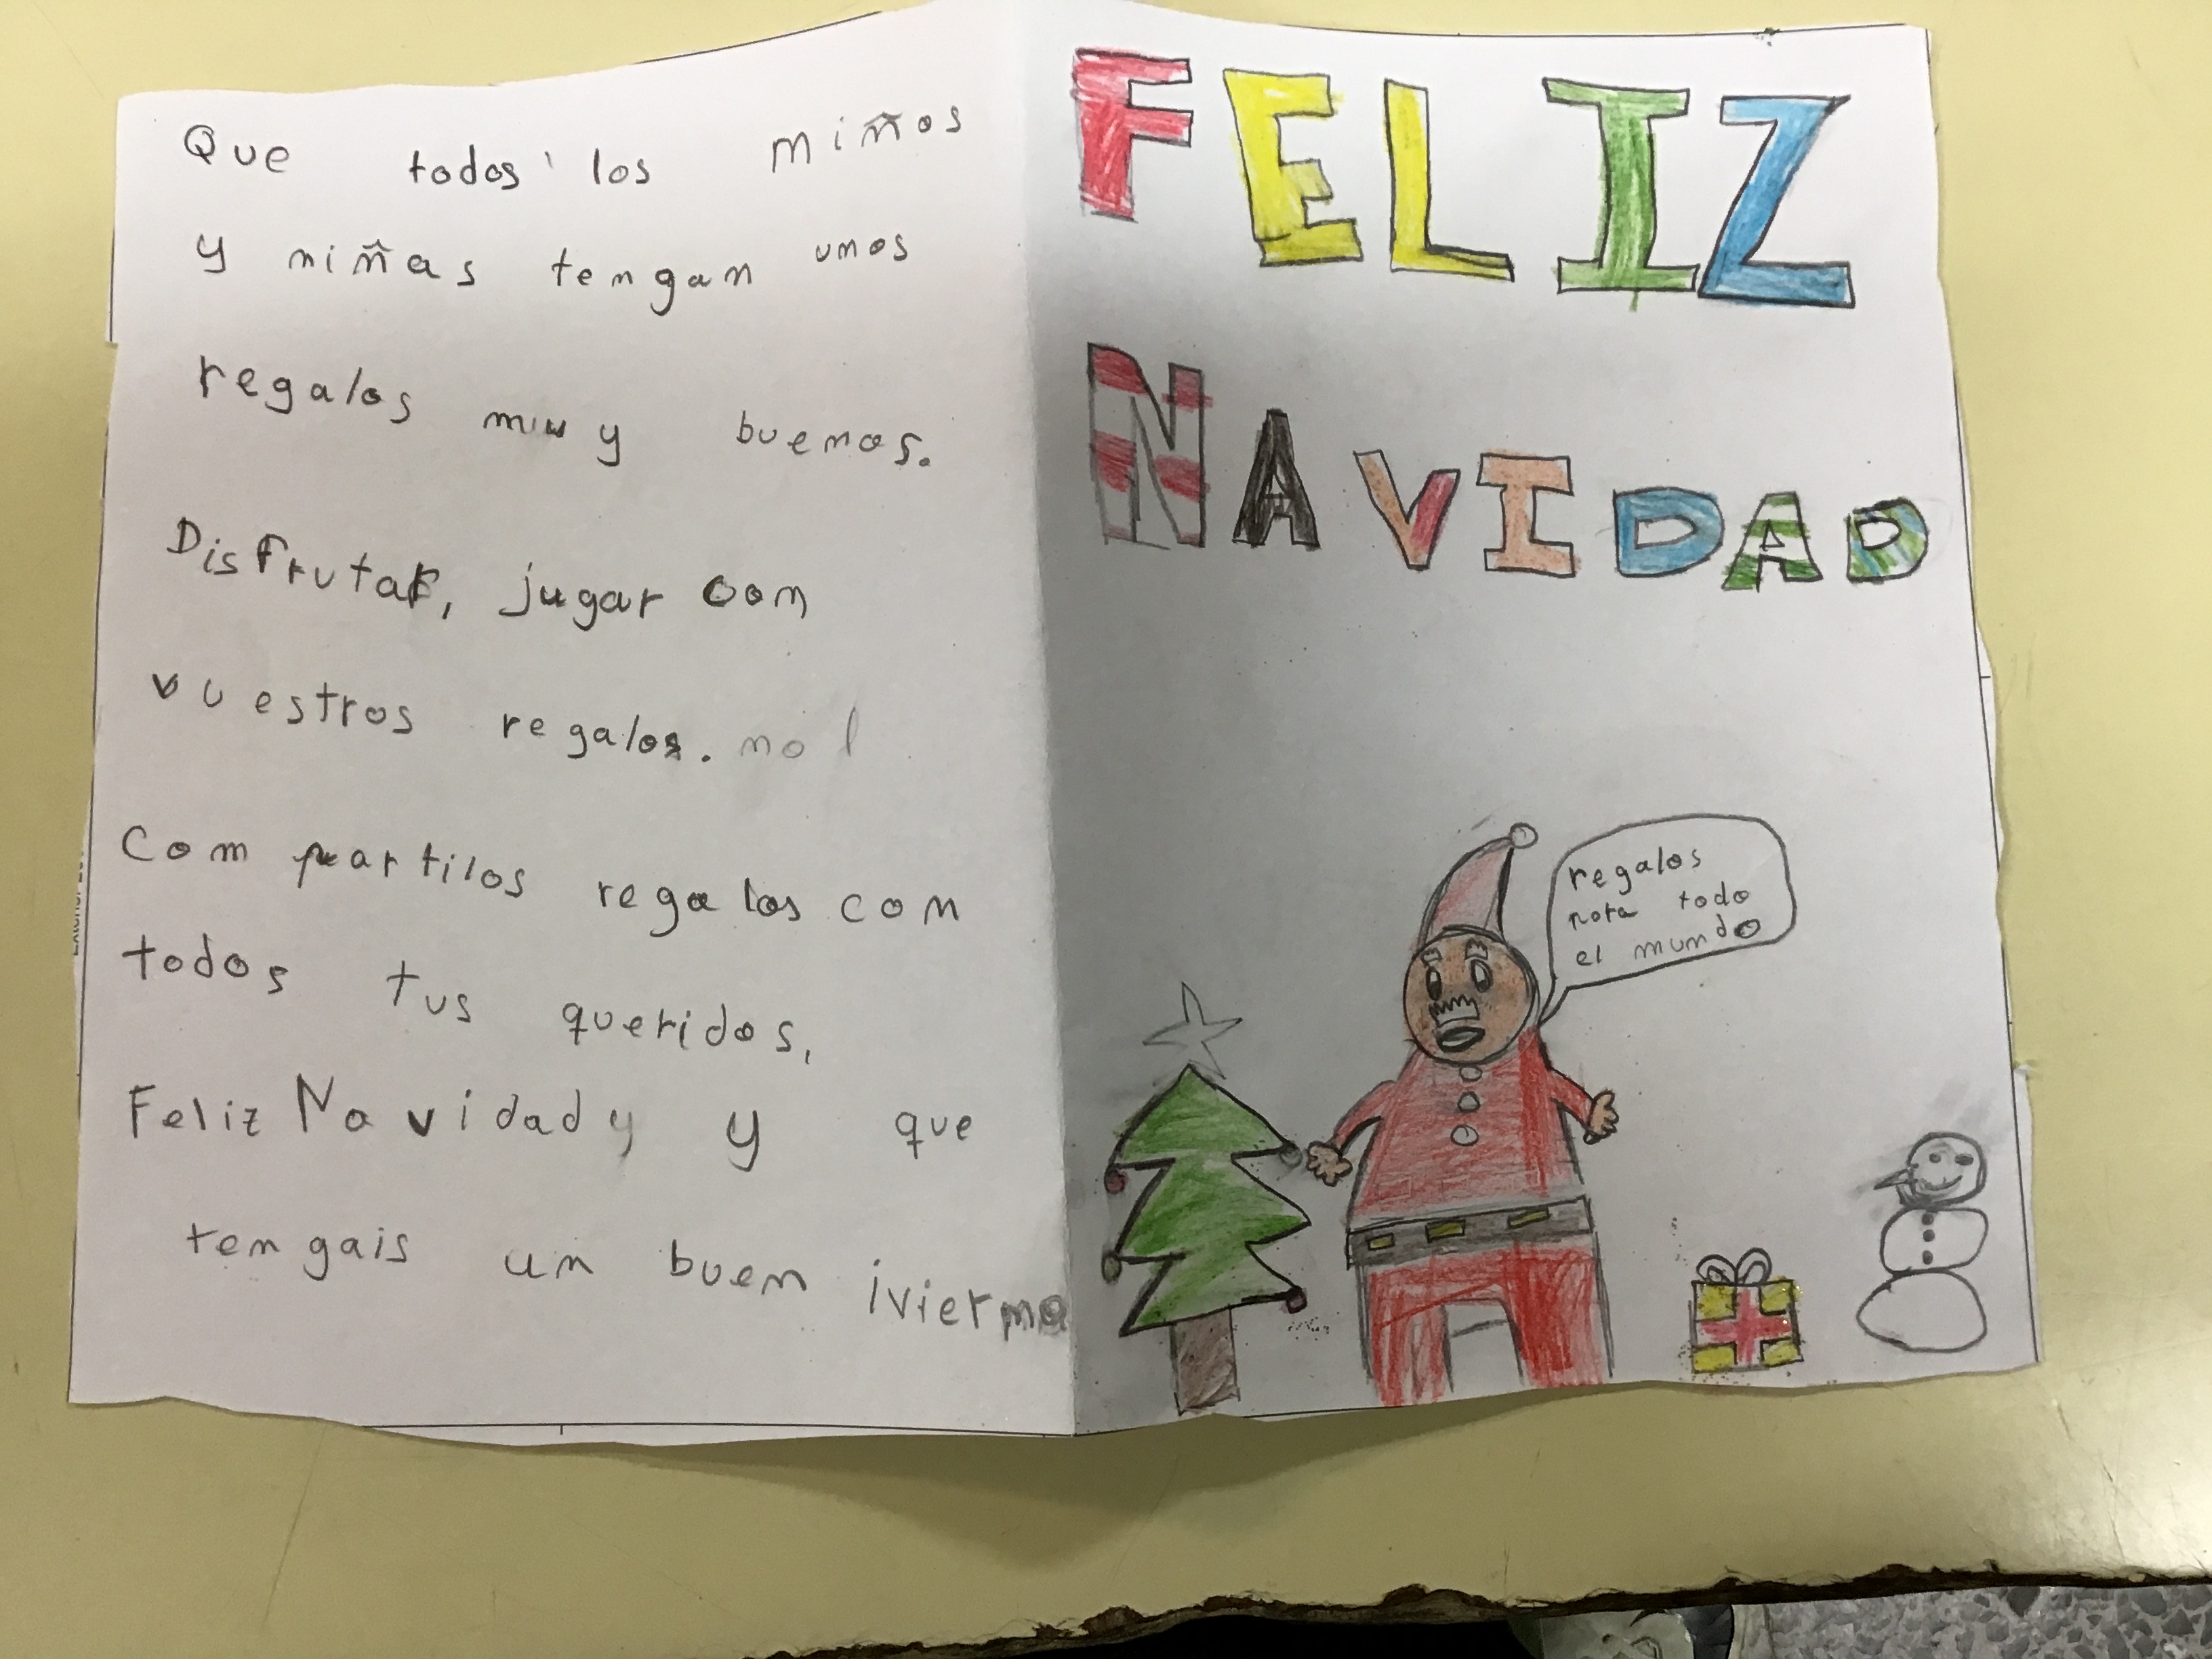 Que todos los niños
y niñas tengan unos
regalos muy buenos.
Disfrutar, jugar con
vuestros regalos. no l
Compartilos regalos con
todos tus queridos,
Feliz Navidad y y que
tengais un buen ivierno
FELIZ
NAVIDAD
regalos
para todo
el mundo